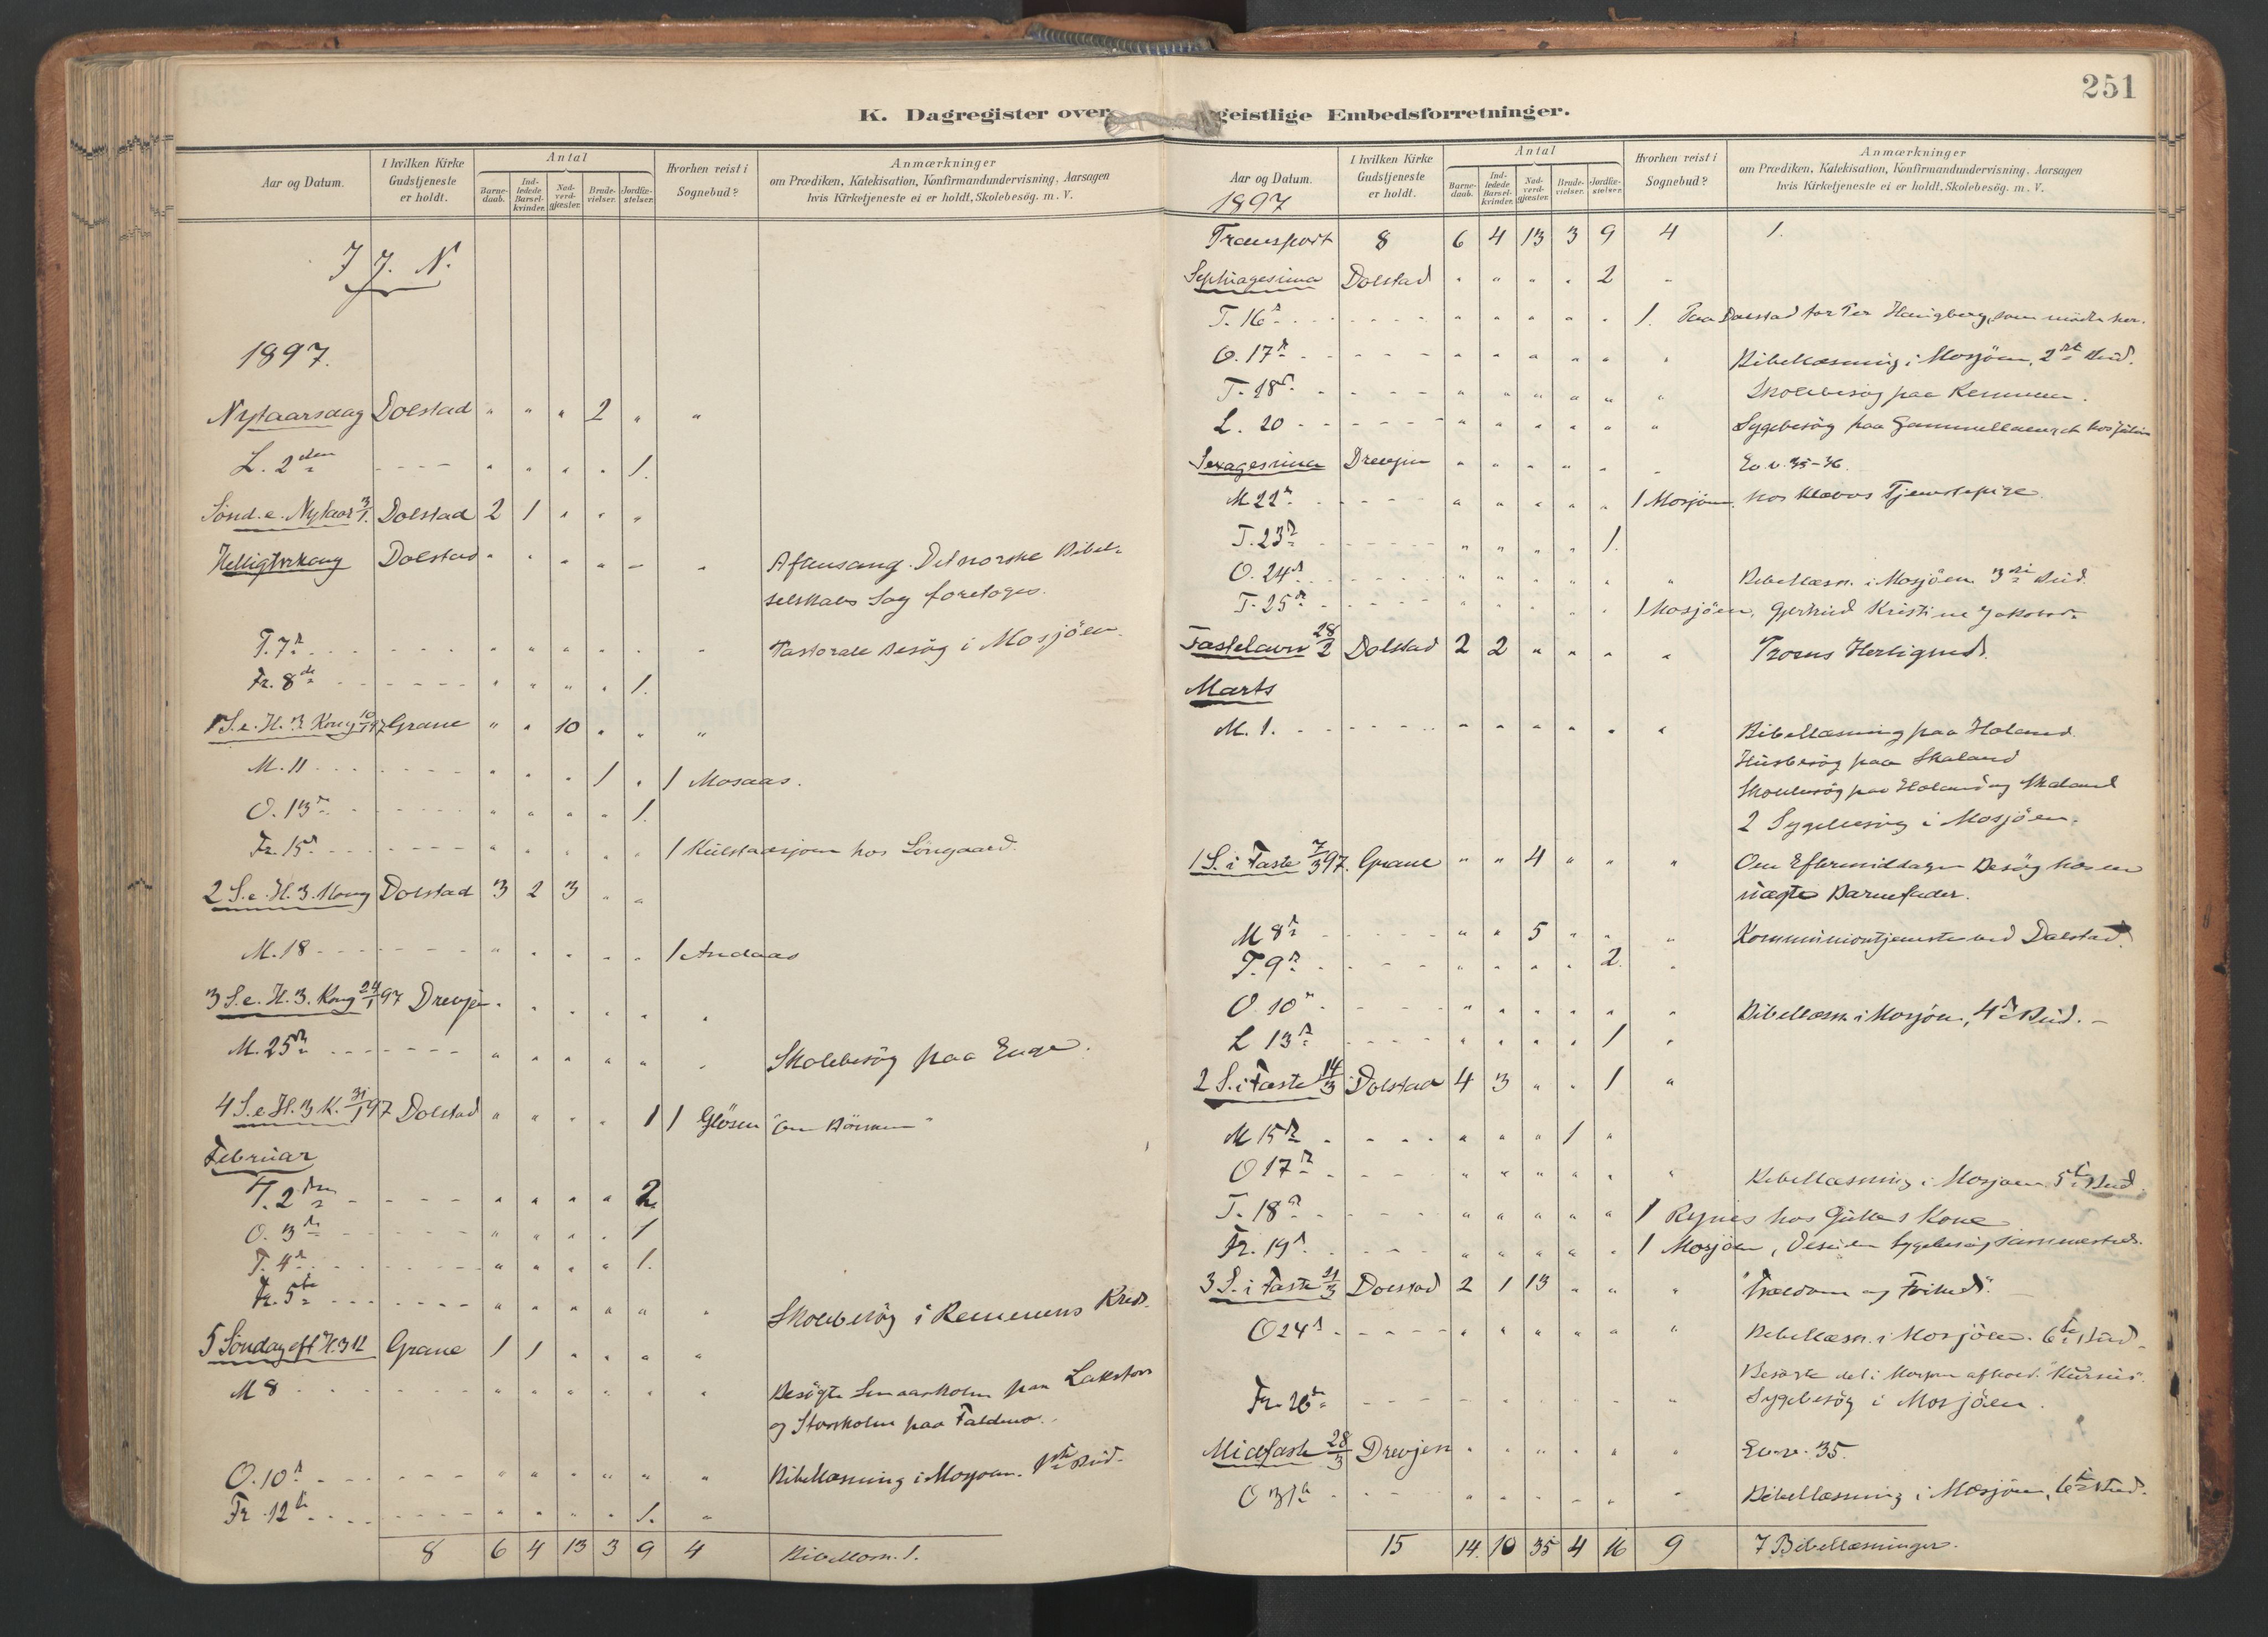 251
K. Dagregister over geistlige Embedsforretninger.
Aar og Datum. I hvilken Kirke Gudstjeneste er holdt. Antal Barnedaab. Indledede Barselkvinder. Nadverdgjæster. Brudevielser. Jordfæstelser. Hvorhen reist i Sognebud? Anmærkninger om Prædiken, Katekisation, Konfirmandundervisning, Aarsagen hvis Kirketjeneste ei er holdt, Skolebesög. m. V.
J. J. N.
1897.
Nytaarsdag Dolstad " " " 2 " "
L. 2den - - - - " " " " 1.
Sönd. e. Nytaar 3/1. Dolstad 2 1 " " "
Helligtrekong Dolstad " " " " " " Aftensang. Det norske Bibel-
selskabs Sag foretoges.
T. 7d - - - - " " " " " " Pastorale Besög i Mosjöen.
Fr. 8de - - - - " " " " 1.
1 S. e. H. 3 Kong 10/1 97 Grane " " 10 " " "
M. 11 - - - - " " " 1 " 1 Mosaas.
O. 13d - - - - " " " " 1.
Fr. 15d - - - - " " " " " 1 Kulstadsjöen hos
2 S. e. H. 3. Kong Dolstad 3 2 3 " "
M. 18 - - - - " " " " " 1 Andaas
3 S. e. H. 3. Kong 24/1 97 Drevjen " " " " " "
M. 25d - - - - " " " " " " Skolebesög paa Enge.
4 S. e. H. 3 K. 31/1 97 Dolstad " " " " 1 1 Glösen "Om Bönnen"
Februar
T. 2den - - - - " " " " 2
O. 3de - - - - " " " " 1
T. 4d - - - - " " " " 1.
Fr. 5te - - - - " " " " " " Skolebesög i Remmens Kreds.
5 Söndag eft H. 3 K Grane 1 1 " " " "
M 8 - - - - " " " " " " Besögte Smaaskolen paa
og Storskolen paa
O. 10d - - - - " " " " " " Bibellæsning i Mosjöen. 1ste Bud.
Fr 12te - - - - " " " " 1. "
8 6 4 13 3 9 4 Bibellæsn. 1.
Aar og Datum. I hvilken Kirke Gudstjeneste er holdt. Antal Barnedaab. Indledede Barselkvinder. Nadverdgjæster. Brudevielser. Jordfæstelser. Hvorhen reist i Sognebud? Anmærkninger om Prædiken, Katekisation, Konfirmandundervisning, Aarsagen hvis Kirketjeneste ei er holdt, Skolebesög. m. V.
1897
Transport 8 6 4 13 3 9 4 1.
Septuagesima Dolstad " " " " 2 "
T. 16d - - - - " " " " " 1. Paa Dolstad for Per som mödte her.
O. 17d - - - - " " " " " " Bibellæsning i Mosjöen, 2det Bud.
T. 18d - - - - " " " " " " Skolebesög paa Remmen.
L. 20 - - - - " " " " " " Sygebesög paa
Sexagesima Drevjen " " " " " " Ev. v. 35-36.
M 22d - - - - " " " " " 1 Mosjöen, hos Klævos Tjenestepige
T. 23d - - - - " " " " 1.
O. 24d - - - - " " " " " " Bibellæsn. i Mosjöen 3die Bud.
T. 25d - - - - " " " " " 1 Mosjöen, Gjertrud Kristine
Fastelavn 28/2 Dolstad 2 2 " " " " Troens Herlighed.
Marts
M. 1. - - - - " " " " " " Bibellæsning paa Holand.
Husbesög paa Skaland
Skolebesög paa Holand og Skaland
2 Sygebesög i Mosjöen.
1 S. i Faste 7/3 97. Grane " " 4 " " " Om Eftermiddagen Besög hos en
uægte Barnefader.
M 8d - - - - " " 5 " " " Kommuniontjeneste ved Dolstad.
T. 9d - - - - " " " " 2. "
O. 10d - - - - " " " " " " Bibellæsn. i Mosjöen, 4de Bud. -
L 13d - - - - " " " " 1 "
2 S. i Faste 14/3 Dolstad 4 3 " " 1 "
M 15d - - - - " " " 1 "
O 17d - - - - " " " " " " Bibellæsning i Mosjöen 5te Bud.
T. 18d - - - - " " " " " 1 Rynes hos Kone
Fr. 19d - - - - " " " " " 1 Mosjöen, Desuden Sygebesög sammesteds.
3 S. i Faste 21/3 Dolstad 2 1 13 " " " "Trældom og Frihed".
O 24d - - - - " " " " " " Bibellæsn. i Mosjöen. 6te Bud.
Besögte det i Mosjöen afhold. Kursus.
Fr. 26d - - - - " " " " " " Sygebesög i Mosjöen.
Midfaste 28/3 Drevjen " " " " " " Ev. v. 35.
O 31d - - - - " " " " " " Bibellæsning i Mosjöen, 6te Bud.
15 14. 10 35 4 16 9 7 Bibellæsninger.